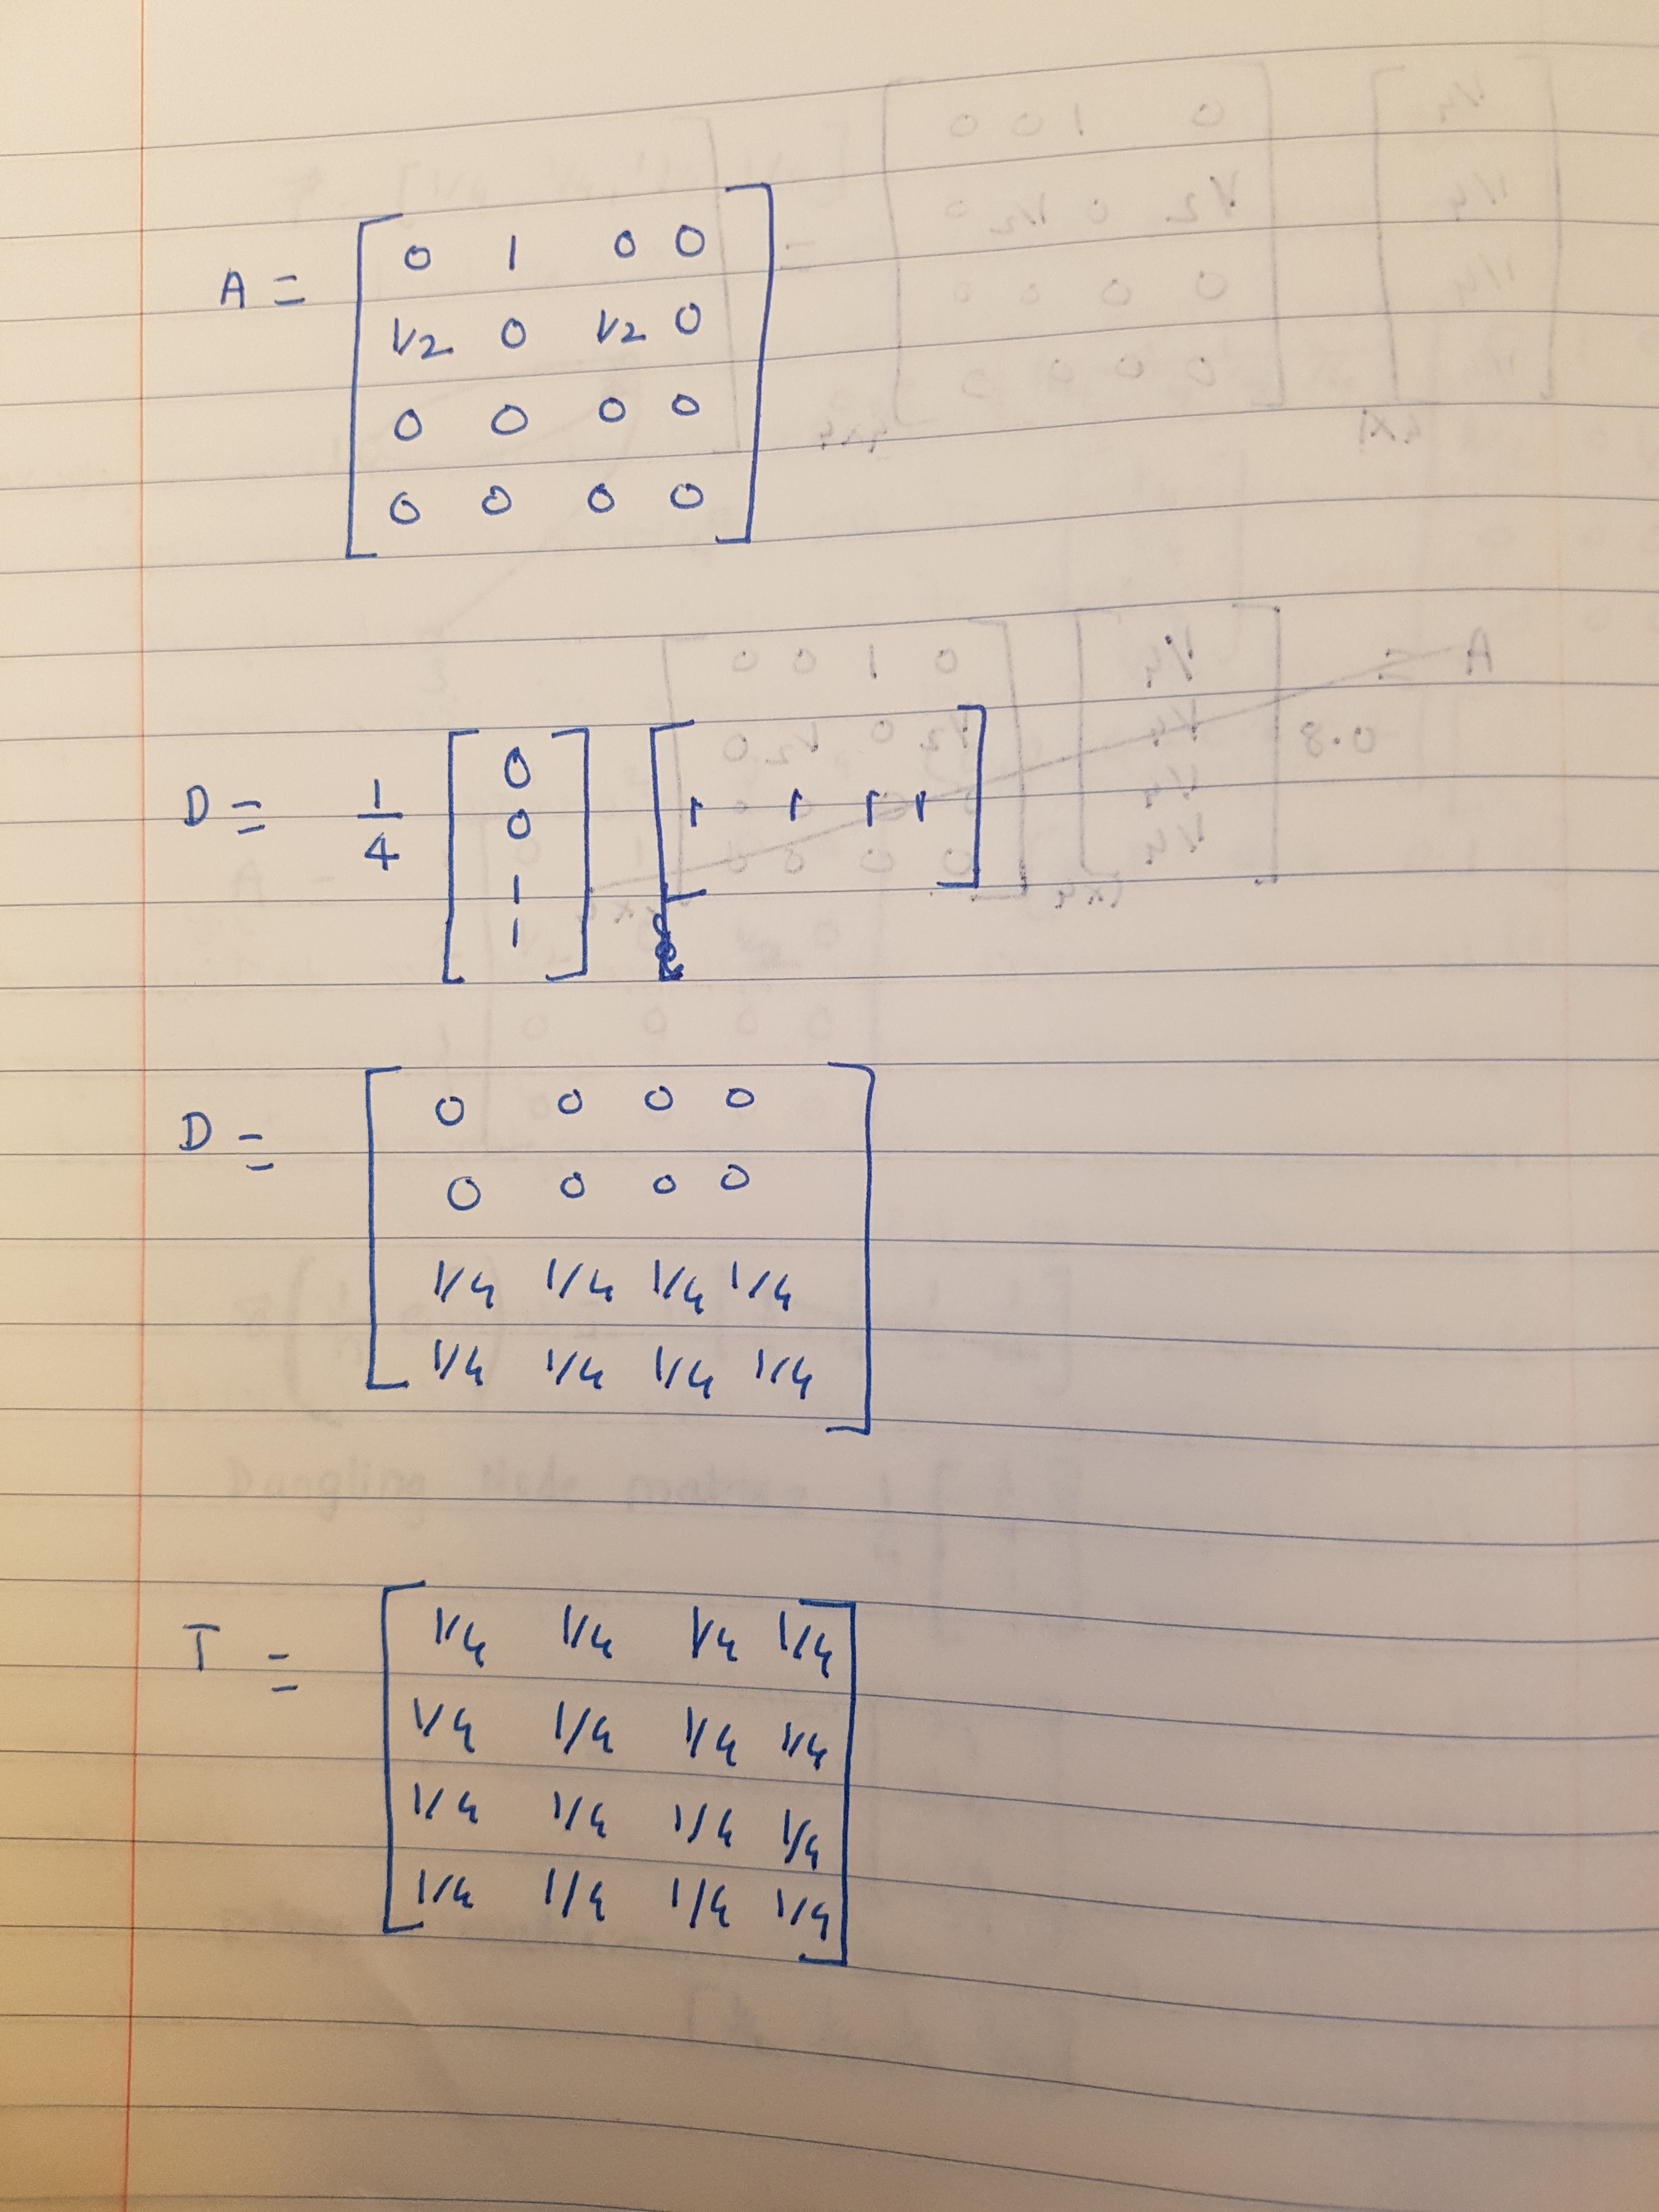 A = [ 0 1 0 0
1/2 0 1/2 0
0 0 0 0
0 0 0 0 ]
D = 1/4 [ 0 0 1 1 ] [ 1 1 1 1 ]
D = [ 0 0 0 0
0 0 0 0
1/4 1/4 1/4 1/4
1/4 1/4 1/4 1/4 ]
T = [ 1/4 1/4 1/4 1/4
1/4 1/4 1/4 1/4
1/4 1/4 1/4 1/4
1/4 1/4 1/4 1/4 ]